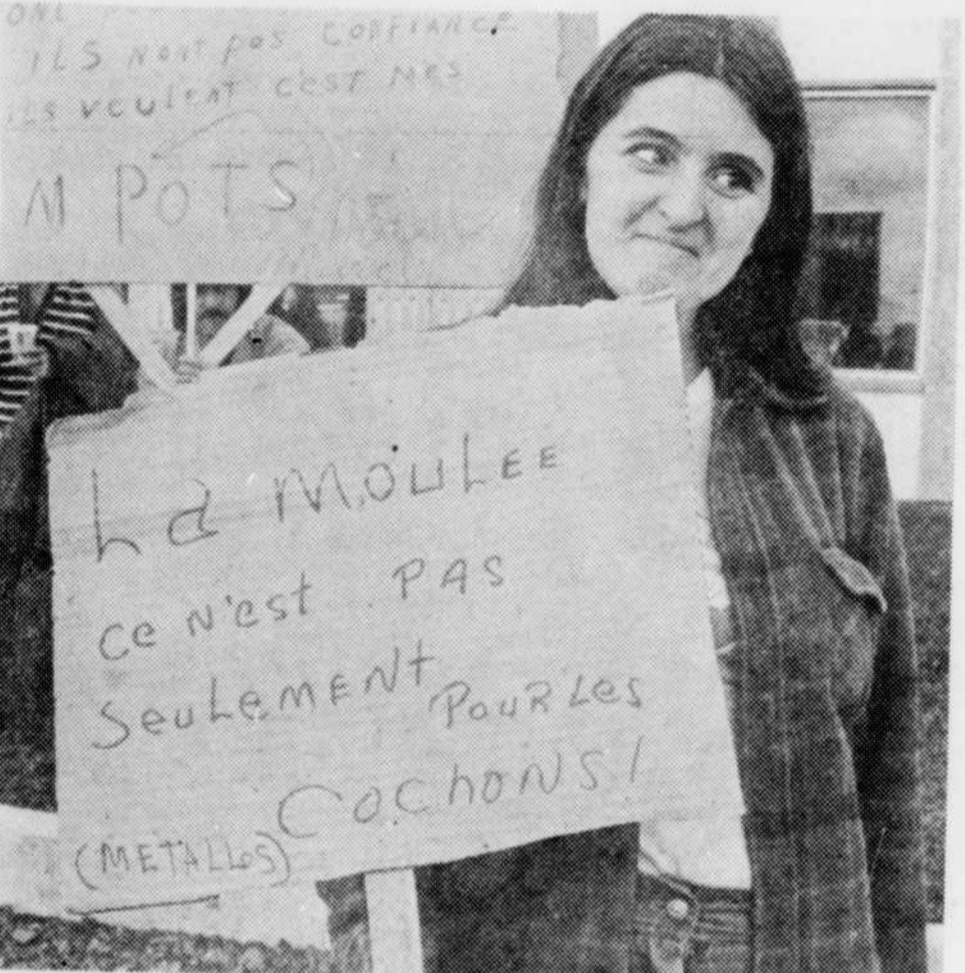 ILS NONT PAS CONFIANCE
ILS VEULENT C'EST MES
MPOTS
La MOULEE
Ce N'est PAS
SeuLeMENt POUR Les
COChONS!
(METALLOS)